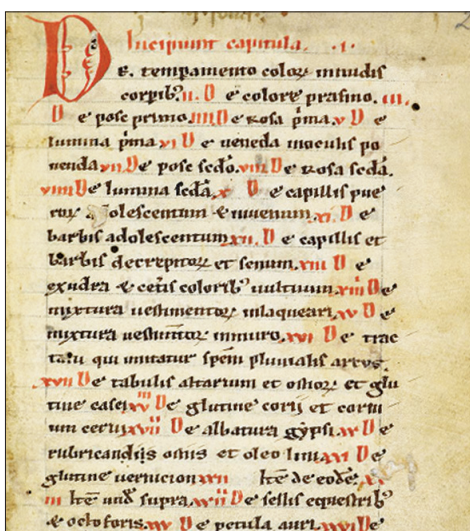 Incipiunt capitula. .I.
De. temperamento coloꝝ in nudis
corpib⁹. ii. De colore prasino. iii.
De posc primo. iiii. De rosa p̄ma. v De
lumina p̄ma vi De ueneda in oculis po
nenda vii. De posc sc̄do. viii De rosa sc̄da.
viiii De lumina sc̄da. x De capillis pue
roꝝ adolescentum & iuuenum. xi. De
barbis adolescentum xii. De capillis et
barbis decrepitoꝝ et senum. xiii De
exudra & cet̄is colorib⁹ uultuum. xiiii De
mixtura uestimentoꝝ in laqueari. xv De
mixtura uestimentoꝝ in muro. xvi De trac
tatu qui imitatur speciē pluuialis arcus.
xvii De tabulis altarium et ostioꝝ et glu
tine casei De glutine corii et cornu
um cerui De albatura gypsi. De
rubricandis ostiis et oleo lini. De
glutine uernicion Itē de eodē.
Itē und̄ supra. De sellis equestrib⁹
& octoforis. De petula auri. De